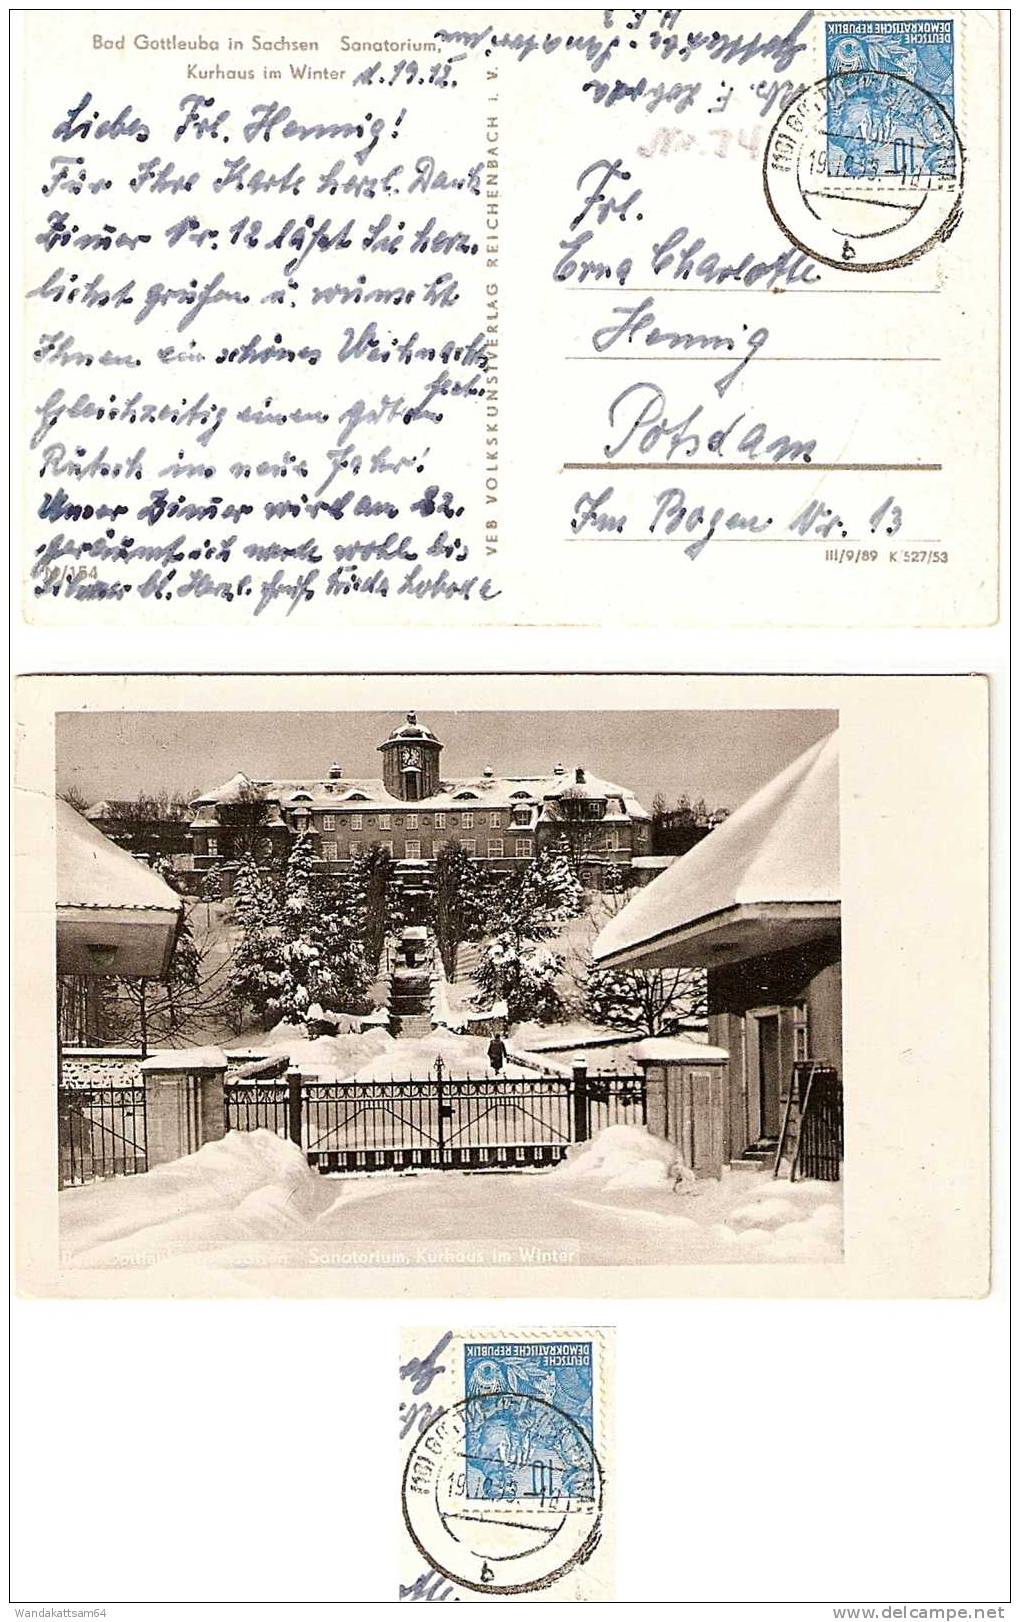 Bad Gottleuba in Sachsen Sanatorium,
Kurhaus im Winter d. 19.12.
Liebes Frl. Hennig!
Für Ihre Karte herzl. Dank
Zimmer Nr. 12 läßt Sie herz-
lichst grüßen u. wünscht
Ihnen ein schönes Weihnachts
fest.
Gleichzeitig einen guten
Rutsch ins neue Jahr!
Unser Zimmer wird am 22.
geräumt ich werde wohl bis
bl. Herzl. Gruß Frida
VEB VOLKSKUNSTVERLAG REICHENBACH i. V.
DEUTSCHE
DEMOKRATISCHE REPUBLIK
10
b
Frl.
Erna Charlotte
Hennig
Potsdam
Im Bogen Nr. 13
III/9/89 K 527/53
Sanatorium, Kurhaus im Winter
DEUTSCHE
DEMOKRATISCHE REPUBLIK
10
b
Wandakattsam64
www.delcampe.net